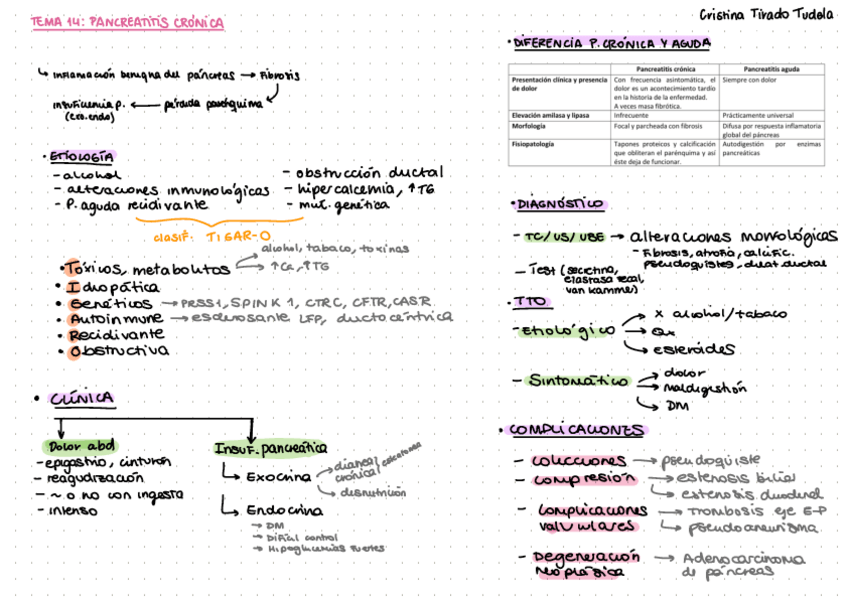 Cristina Tirado Tudela
TEMA 14: PANCREATITIS CRÓNICA
↳ inflamación benigna del páncreas → Fibrosis
insuficiencia p. ← pérdida parénquima
(exo.endo)
• ETIOLOGÍA
- alcohol
- alteraciones inmunológicas
- P. aguda recidivante
- obstrucción ductal
- hipercalcemia, ↑TG
- mut. genética
clasif. TIGAR-O
• Tóxicos, metabolitos
alcohol, tabaco, toxinas
↑Ca, ↑TG
• Idiopática
• Genéticos → PRSS1, SPINK 1, CTRC, CFTR, CASR
• Autoinmune → esclerosante LFP, ductocéntrica
• Recidivante
• Obstructiva
• CLÍNICA
Dolor abd
- epigastrio, cinturón
- reagudización
- ~ o no con ingesta
- intenso
Insuf. pancreática
↳ Exocrina
diarrea crónica, esteatorrea
desnutrición
↳ Endocrina
→ DM
→ Difícil control
→ Hipoglucemias fuertes
• DIFERENCIA P. CRÓNICA Y AGUDA
Pancreatitis crónica Pancreatitis aguda
Presentación clínica y presencia de dolor
Con frecuencia asintomática, el dolor es un acontecimiento tardío en la historia de la enfermedad.
A veces masa fibrótica.
Siempre con dolor
Elevación amilasa y lipasa Infrecuente Prácticamente universal
Morfología Focal y parcheada con fibrosis Difusa por respuesta inflamatoria global del páncreas
Fisiopatología Tapones proteicos y calcificación que obliteran el parénquima y así éste deja de funcionar. Autodigestión por enzimas pancreáticas
• DIAGNÓSTICO
- TC/US/USE → alteraciones morfológicas
- Fibrosis, atrofia, calcific.
pseudoquistes, dilat. ductal
- Test (secretina,
elastasa fecal,
van kamme)
• TTO
- Etiológico
x alcohol/tabaco
Qx
esteroides
- Sintomático
dolor
maldigestión
DM
• COMPLICACIONES
- colecciones → pseudoquiste
- compresión → estenosis biliar
↳ estenosis duodenal
- complicaciones → Trombosis eje E-P
valvulares ↳ pseudoaneurisma
- Degeneración → Adenocarcinoma
neoplásica de páncreas